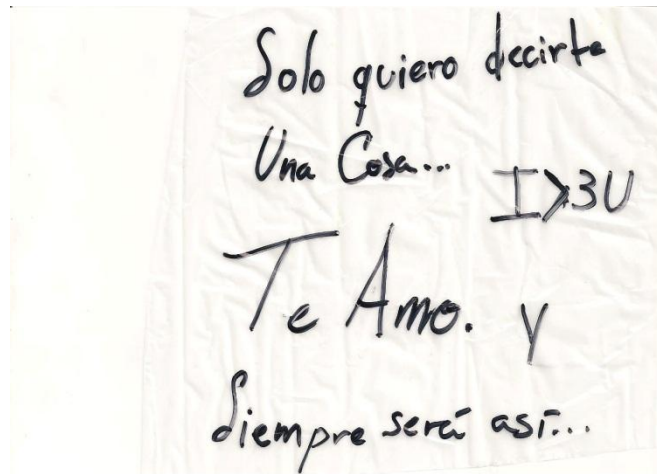 Solo quiero decirte
Una Cosa...
I>3U
Te Amo. y
Siempre será así...